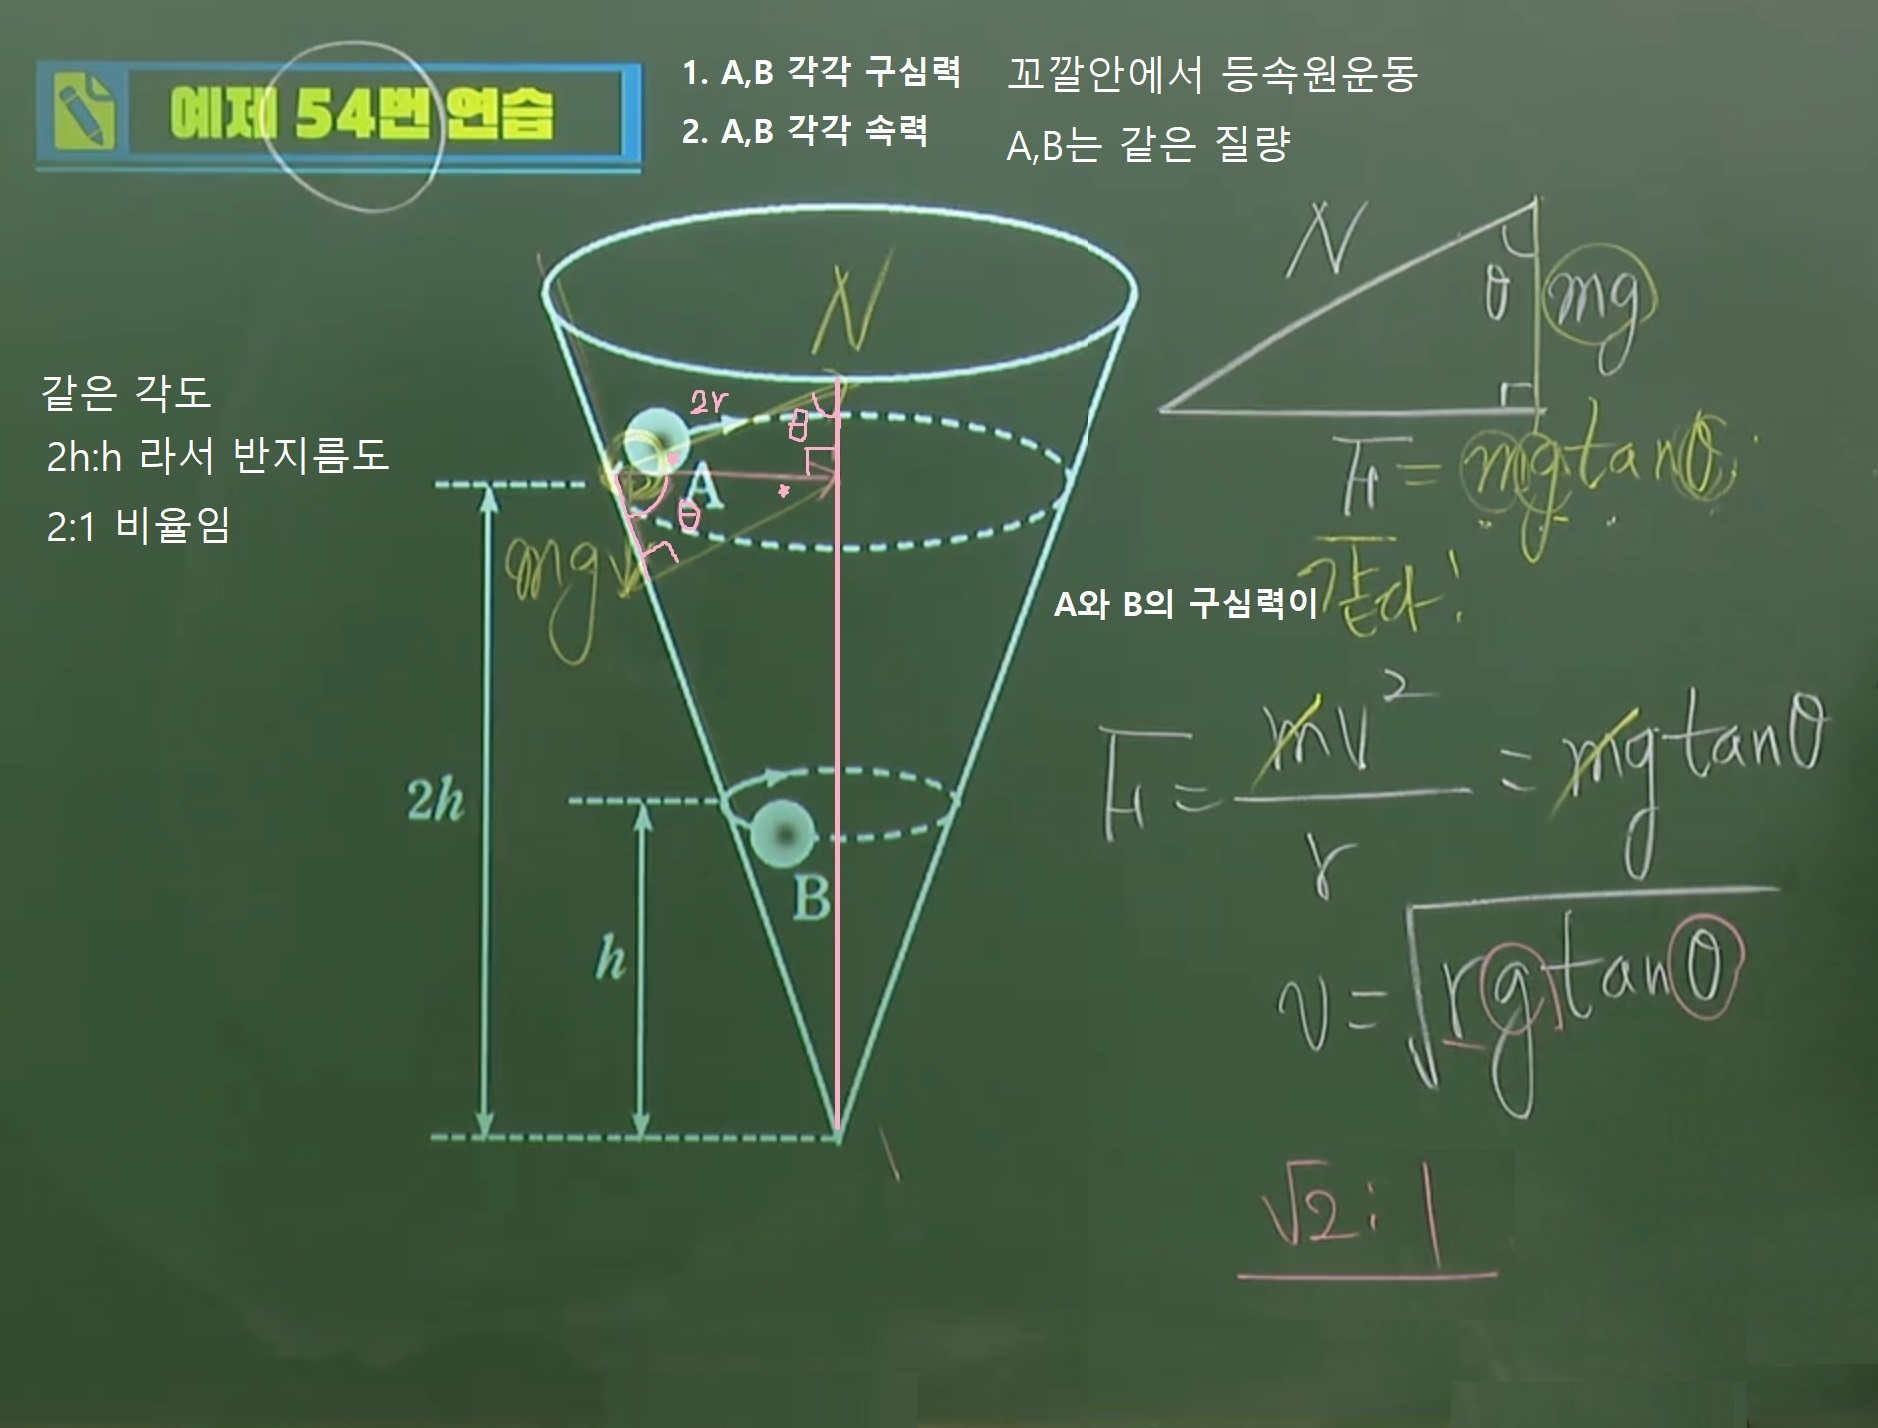 예제 54번 연습
1. A,B 각각 구심력
2. A,B 각각 속력
꼬깔안에서 등속원운동
A,B는 같은 질량
같은 각도
2h:h 라서 반지름도
2:1 비율임
N
2r
θ
A
θ
mg
2h
h
B
N
θ
mg
F = mg tanθ
A와 B의 구심력이 같다!
F = mv²/r = mg tanθ
v = √rg tanθ
√2 : 1